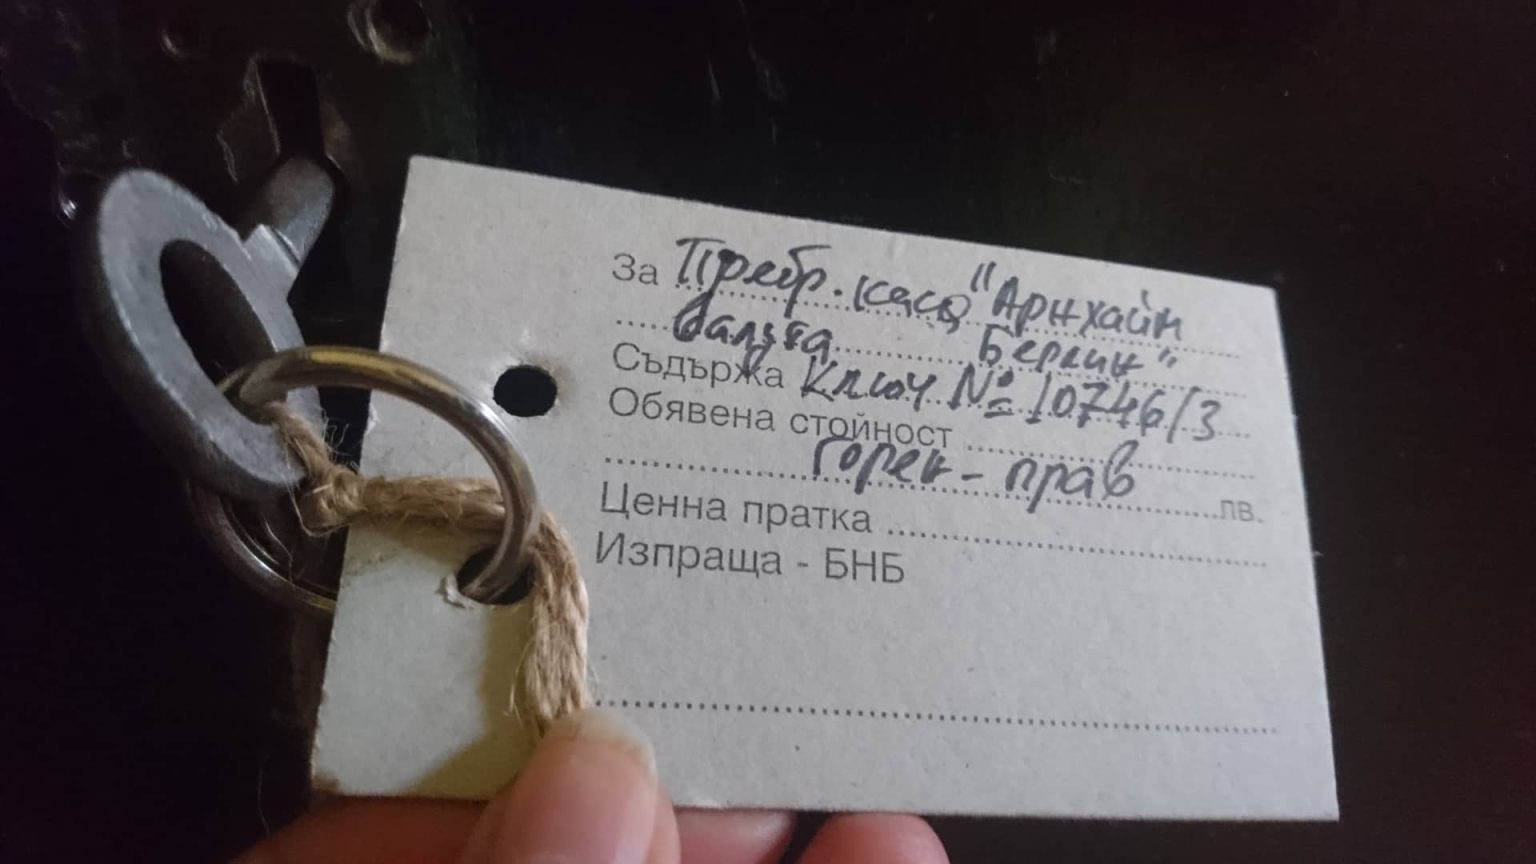 За Требр. каса "Арнхайм
валута Берлин"
Съдържа Ключ № 10746/3
Обявена стойност
Горен - прав
лв.
Ценна пратка
Изпраща - БНБ